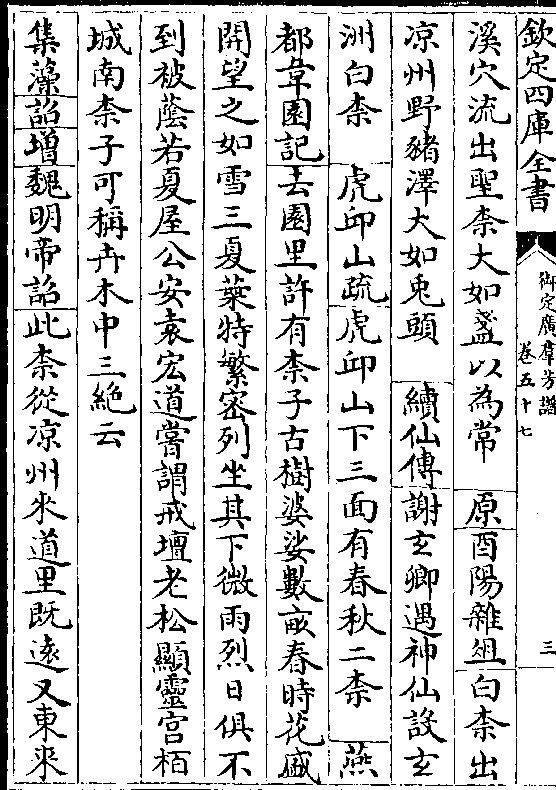 欽定四庫全書
御定廣羣芳譜
卷五十七
三
溪穴流出聖柰大如盞以為常　原酉陽雜俎白柰出
凉州野豬澤大如兎頭　續仙傳謝玄卿遇神仙設玄
洲白柰　虎邱山疏虎邱山下三面有春秋二柰　燕
都韋園記去園里許有柰子古樹婆娑數畝春時花盛
開望之如雪三夏葉特繁密列坐其下微雨烈日俱不
到被蔭若夏屋公安袁宏道嘗謂戒壇老松顯靈宫栢
城南柰子可稱卉木中三絶云
集藻詔增魏明帝詔此柰從凉州來道里既逺又東來